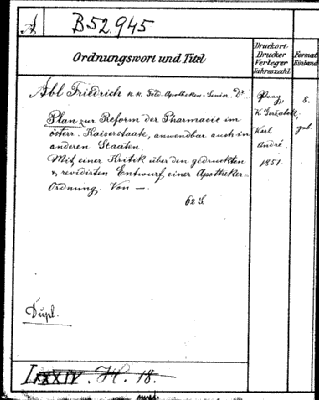 A
B52,945
Ordnungswort und Titel
Druckort
Drucker
Verleger
Jahreszahl
Format
Einband
Abl Friedrich k. k. Feld-Apotheken-Senior. Dr
Plan zur Reform der Pharmacie im
österr. Kaiserstaate, anwendbar auch in
anderen Staaten.
Mit einer Kritik über den gedruckten
u. revidirten Entwurf einer Apotheker-
Ordnung, Von —.
62 S
Prag,
Karl
André.
1851.
8.
geb.
Dupl.
H. 18.